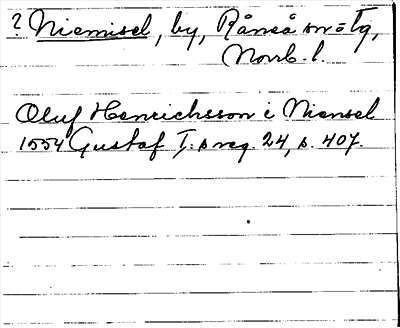 ? Niemisel, by, Råneå sn o tg,
Norrb. l.
Oluf Henrichsson i Niensel
1554 Gustaf I:s reg. 24, s. 407.